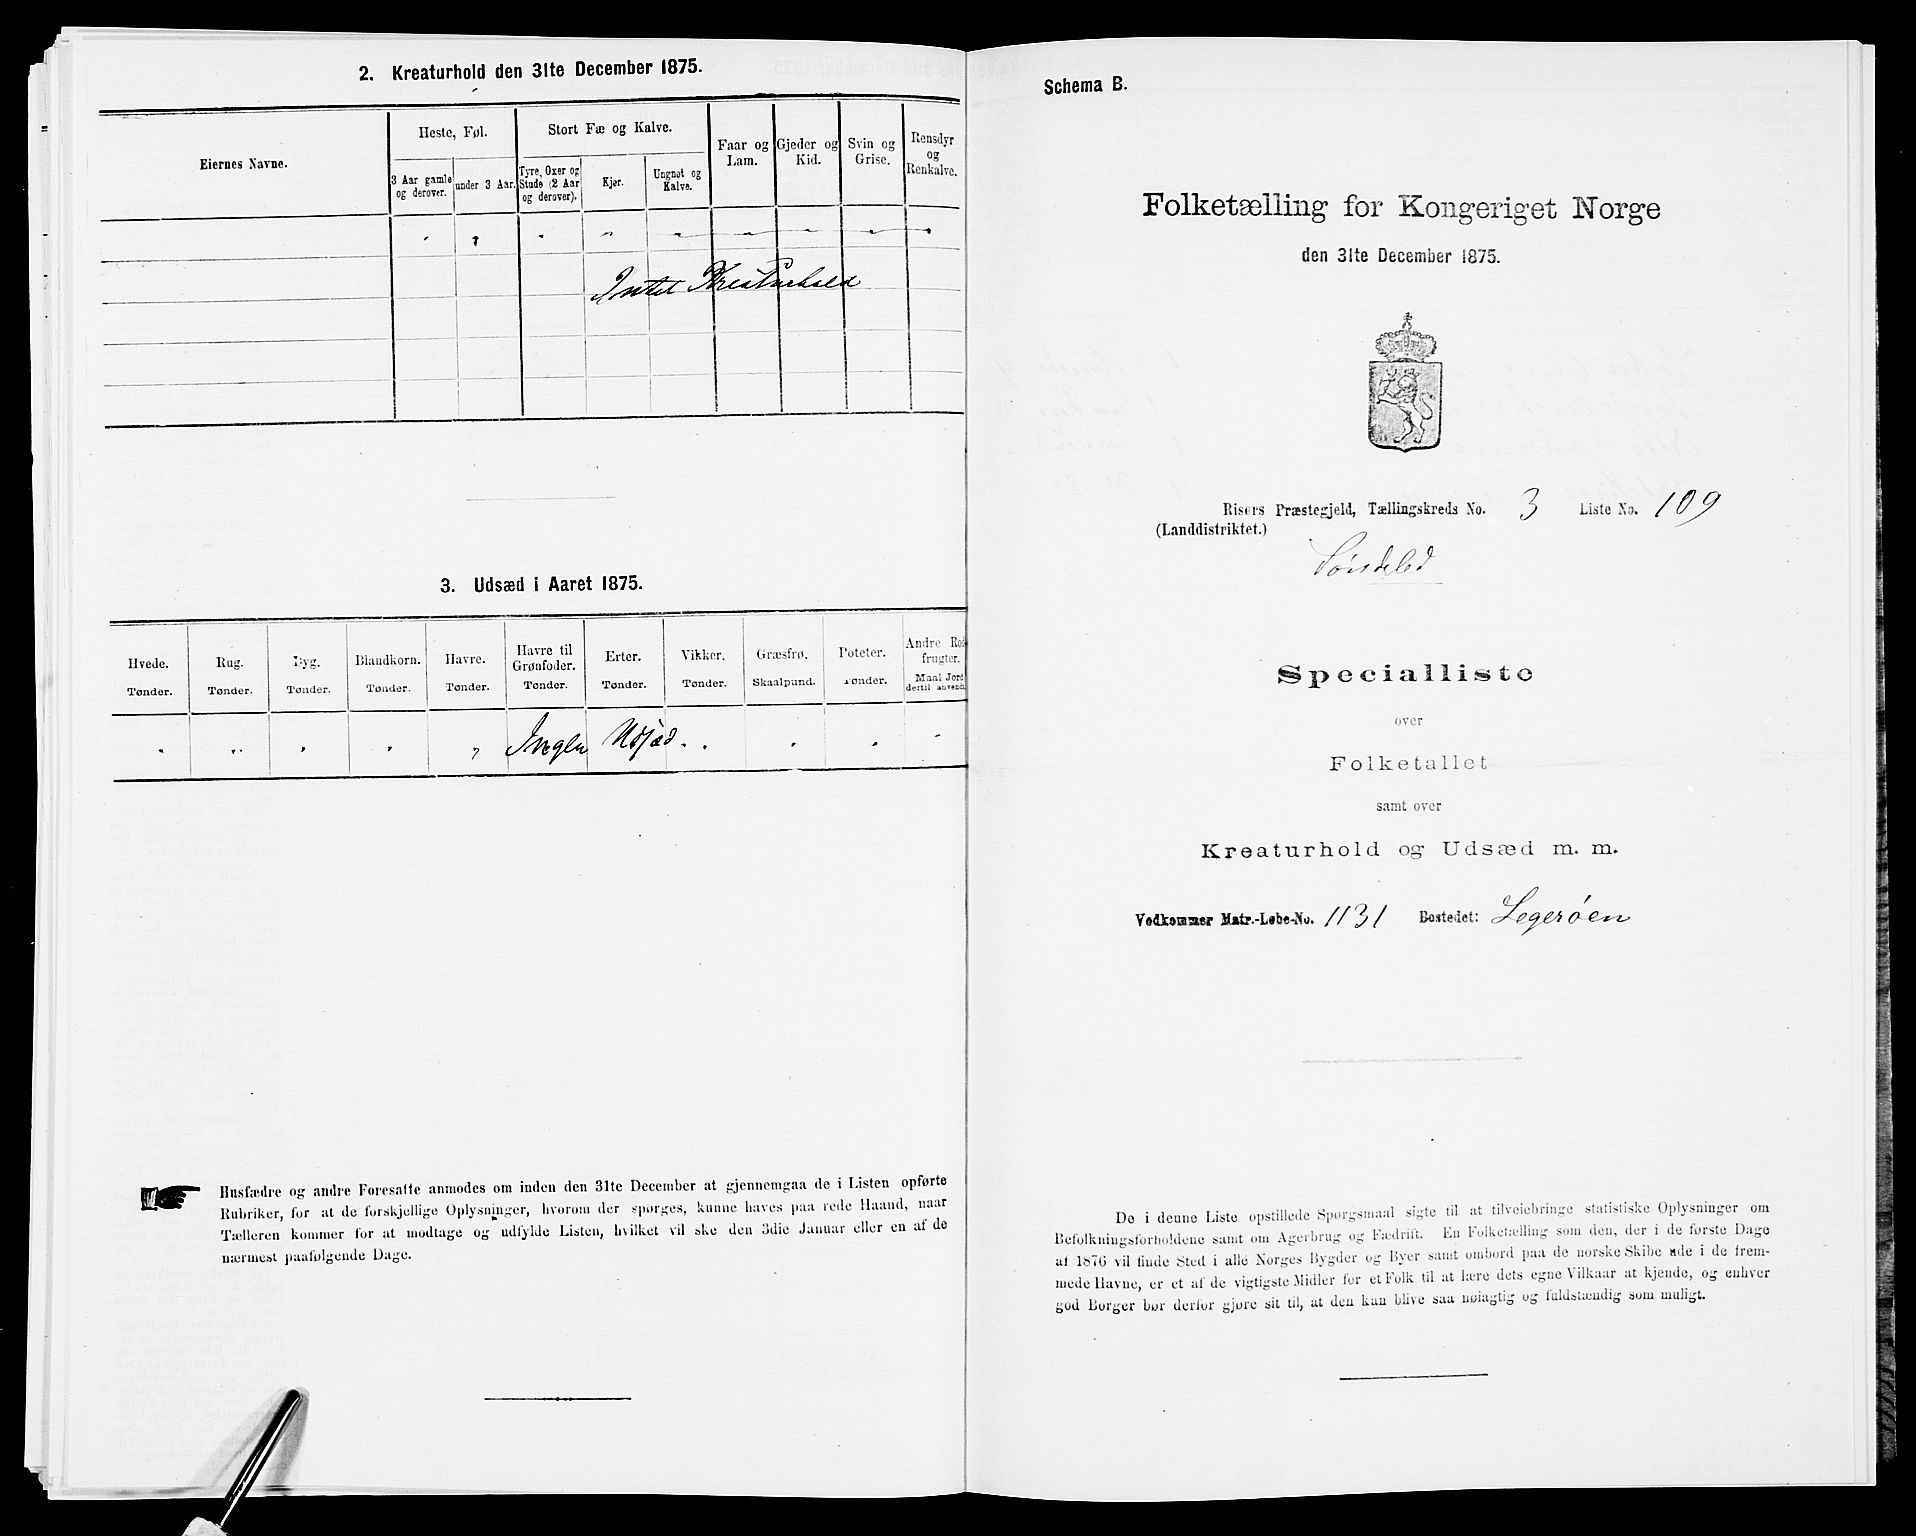 2. Kreaturhold den 31te December 1875.
Eiernes Navne.
Heste, Føl.
Stort Fæ og Kalve.
Faar og
Lam.
Gjeder og
Kid.
Svin og
Grise.
Rensdyr
og
Renkalve.
3 Aar gamle
og derover.
under 3 Aar.
Tyre, Oxer og
Stude (2 Aar
og derover).
Kjør.
Ungnøt og
Kalve.
Intet Kreaturhold
3. Udsæd i Aaret 1875.
Hvede.
Tønder.
Rug.
Tønder.
Byg.
Tønder.
Blandkorn.
Tønder.
Havre.
Tønder.
Havre til
Grønfoder.
Tønder.
Erter.
Tønder.
Vikker.
Tønder.
Græsfrø.
Skaalpund.
Poteter.
Tønder.
Andre Rod-
frugter.
Maal Jord
dertil anvendt.
Ingen Udsæd.
Husfædre og andre Foresatte anmodes om inden den 31te December at gjennemgaa de i Listen opførte
Rubriker, for at de forskjellige Oplysninger, hvorom der spørges, kunne haves paa rede Haand, naar
Tælleren kommer for at modtage og udfylde Listen, hvilket vil ske den 3die Januar eller en af de
nærmest paafølgende Dage.
Schema B.
Folketælling for Kongeriget Norge
den 31te December 1875.
Risørs Præstegjeld, Tællingskreds No. 3 Liste No. 109
(Landdistriktet.)
Søndeled
Specialliste
over
Folketallet
samt over
Kreaturhold og Udsæd m. m.
Vedkommer Matr.-Løbe-No. 1131 Bostedet: Legerøen
De i denne Liste opstillede Spørgsmaal sigte til at tilveiebringe statistiske Oplysninger om
Befolkningsforholdene samt om Agerbrug og Fædrift. En Folketælling som den, der i de første Dage
af 1876 vil finde Sted i alle Norges Bygder og Byer samt ombord paa de norske Skibe ude i de frem-
mede Havne, er et af de vigtigste Midler for et Folk til at lære dets egne Vilkaar at kjende, og enhver
god Borger bør derfor gjøre sit til, at den kan blive saa nøiagtig og fuldstændig som muligt.